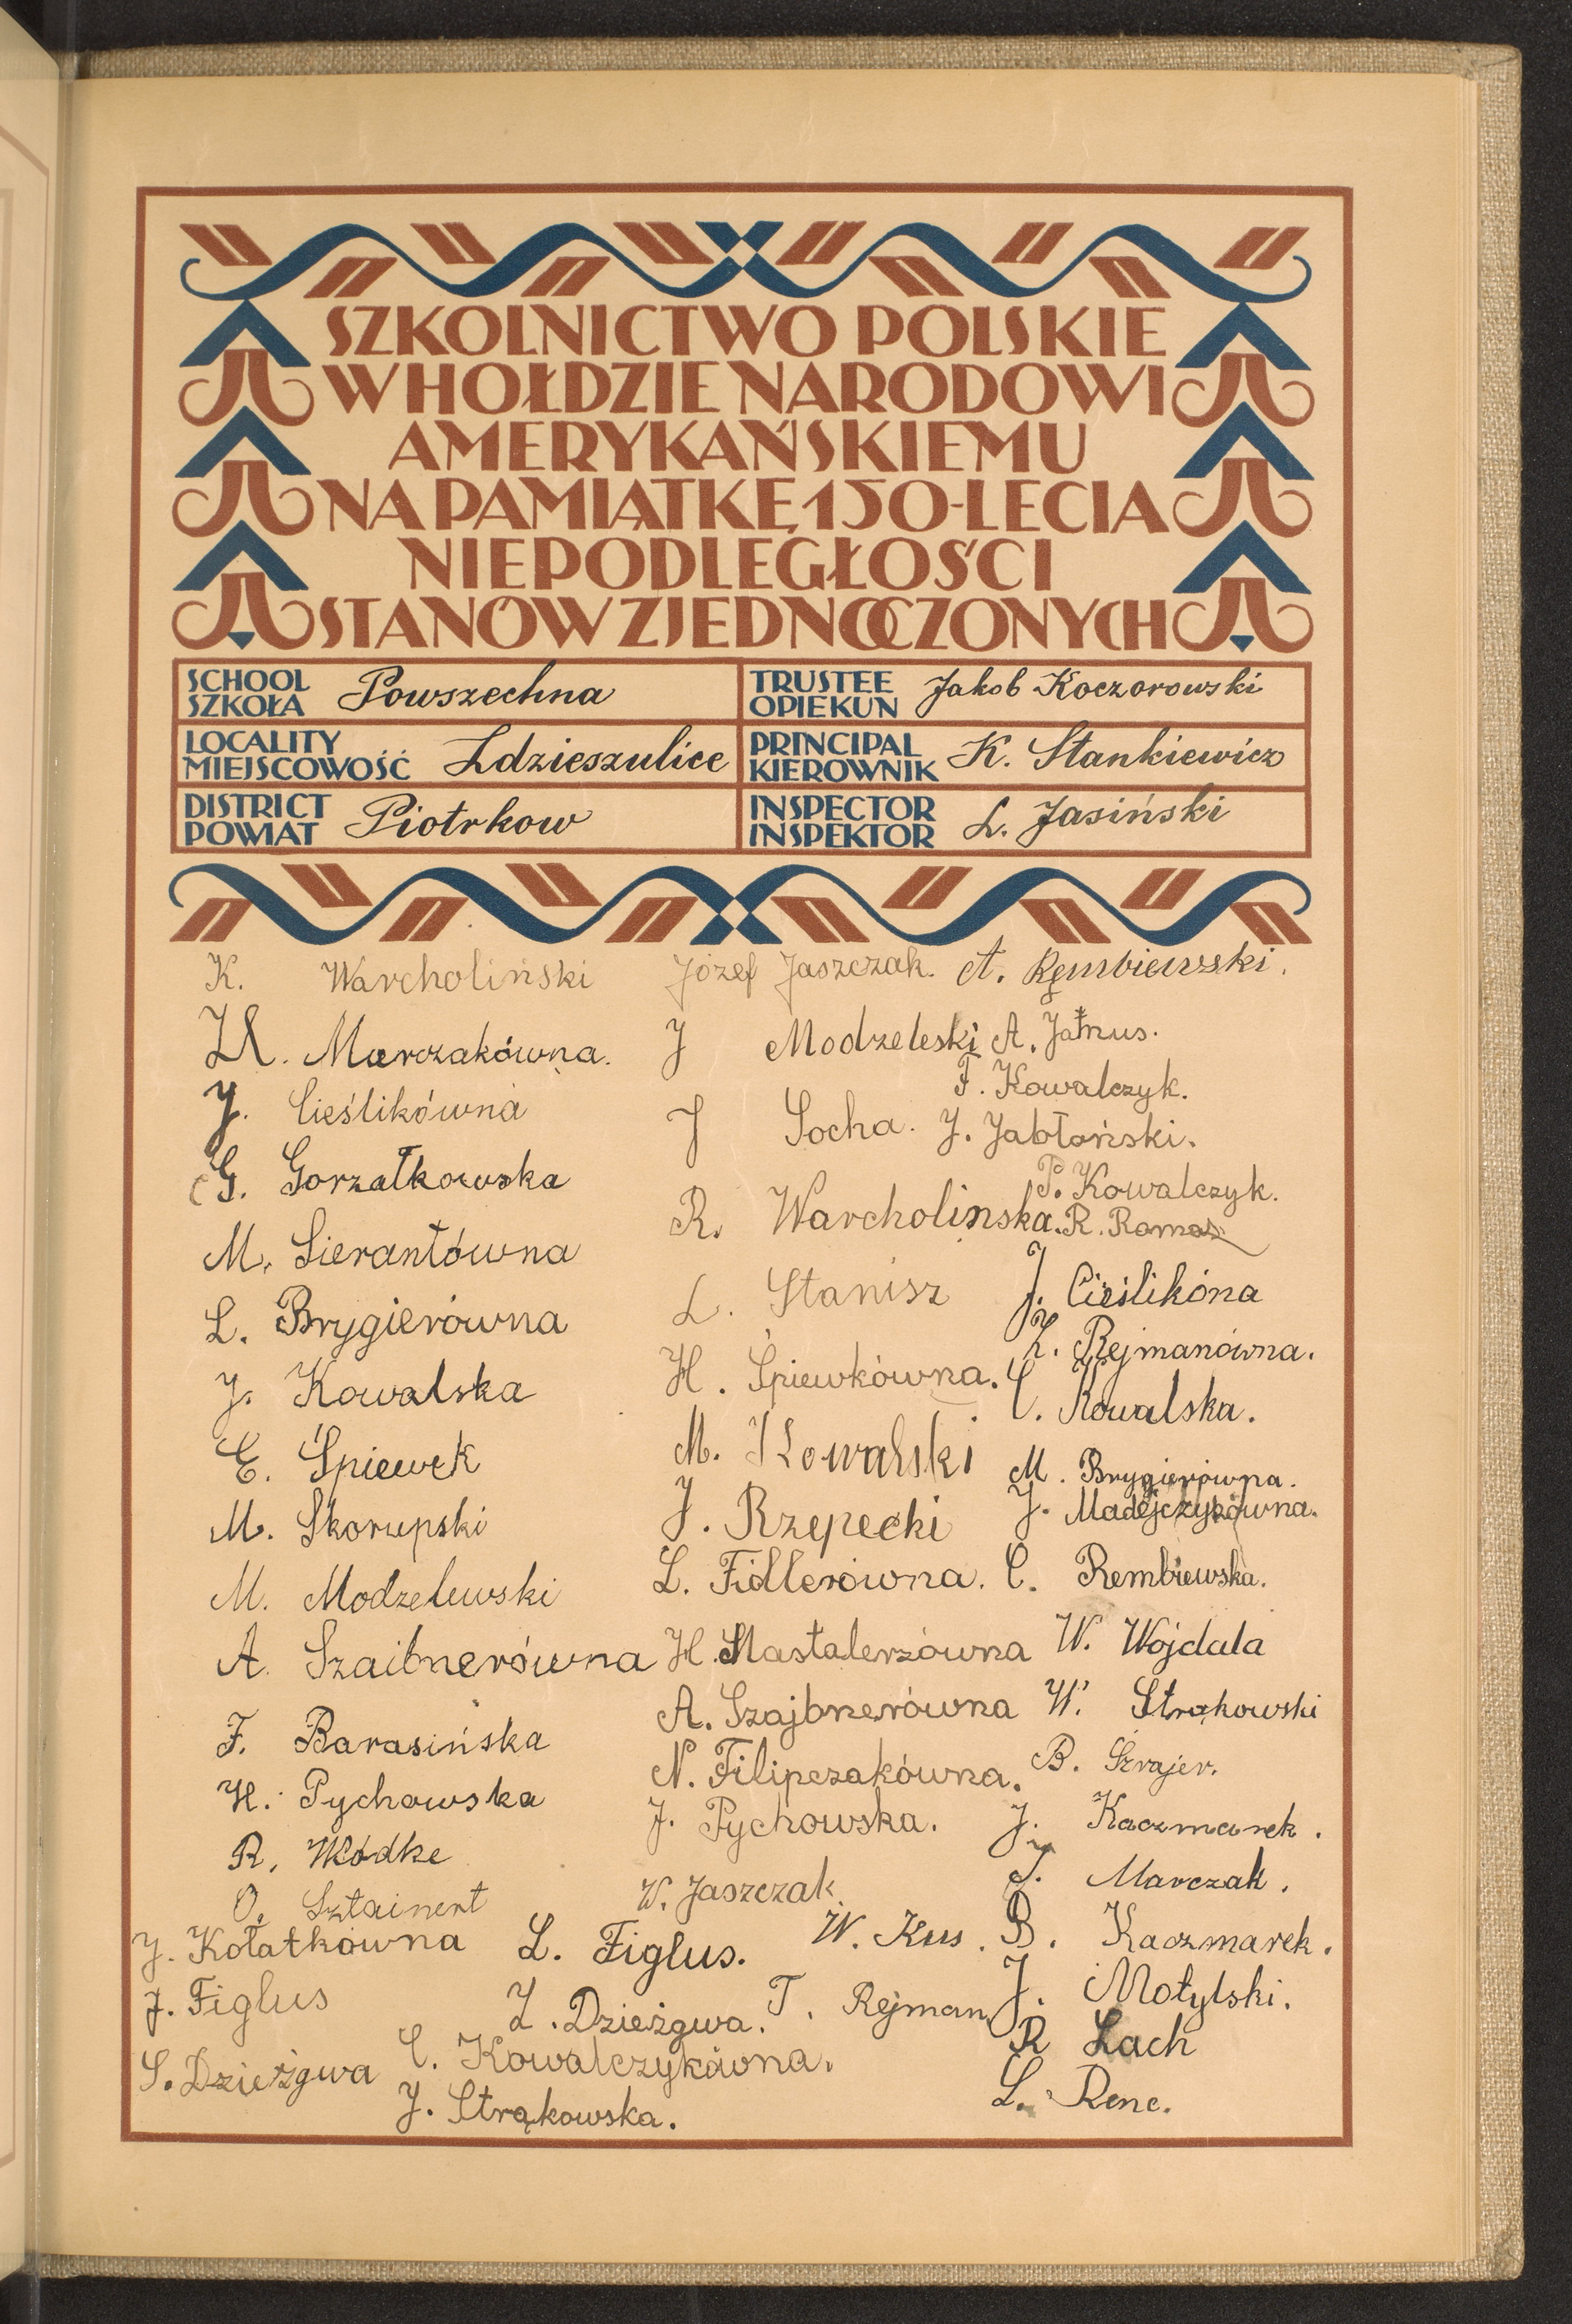 SZKOLNICTWO POLSKIE
W HOŁDZIE NARODOWI
AMERYKAŃSKIEMU
NA PAMIĄTKĘ 150-LECIA
NIEPODLEGŁOŚCI
STANÓW ZJEDNOCZONYCH
SCHOOL
SZKOŁA Powszechna
TRUSTEE
OPIEKUN Jakob Koczorowski
LOCALITY
MIEJSCOWOŚĆ Zdzieszulice
PRINCIPAL
KIEROWNIK K. Stankiewicz
DISTRICT
POWIAT Piotrkow
INSPECTOR
INSPEKTOR L. Jasiński
K. Warcholiński
Marczakówna.
J. Cieślikówna
G. Gorzałkowska
M. Sierantówna
L. Brygierówna
J. Kowalska
E. Śpiewek
M. Skorupski
M. Modzelewski
A. Szaibnerówna
F. Barasińska
H. Pychowska
R. Wódke
O. Sztainert
J. Kołatkówna
J. Figlus
S. Dzieżgwa
Józef Jaszczak.
J Modzeleski
J Socha.
R. Warcholinska.
L. Stanisz
H. Śpiewkówna.
M. Kowalski
J. Rzepecki
L. Fidlerówna.
H. Mastalerzówna
A. Szajbnerówna
N. Filipczakówna.
J. Pychowska.
W. Jaszczak.
L. Figlus.
W. Kus.
Z. Dzieżgwa.
T. Rejman
C. Kowalczykówna.
J. Strąkowska.
A. Rembiewski.
A. Jatnus.
F. Kowalczyk.
J. Jabłoński.
P. Kowalczyk.
R. Romas
J. Cieślikóna
Z. Rejmanówna.
C. Kowalska.
M. Brygierówna.
J. Madejczykówna.
C. Rembiewska.
W. Wojdala
W. Strąkowski
B. Szrajer.
J. Kaczmarek.
J. Marczak.
B. Kaczmarek.
J. Motylski.
R Lach
L. Renc.